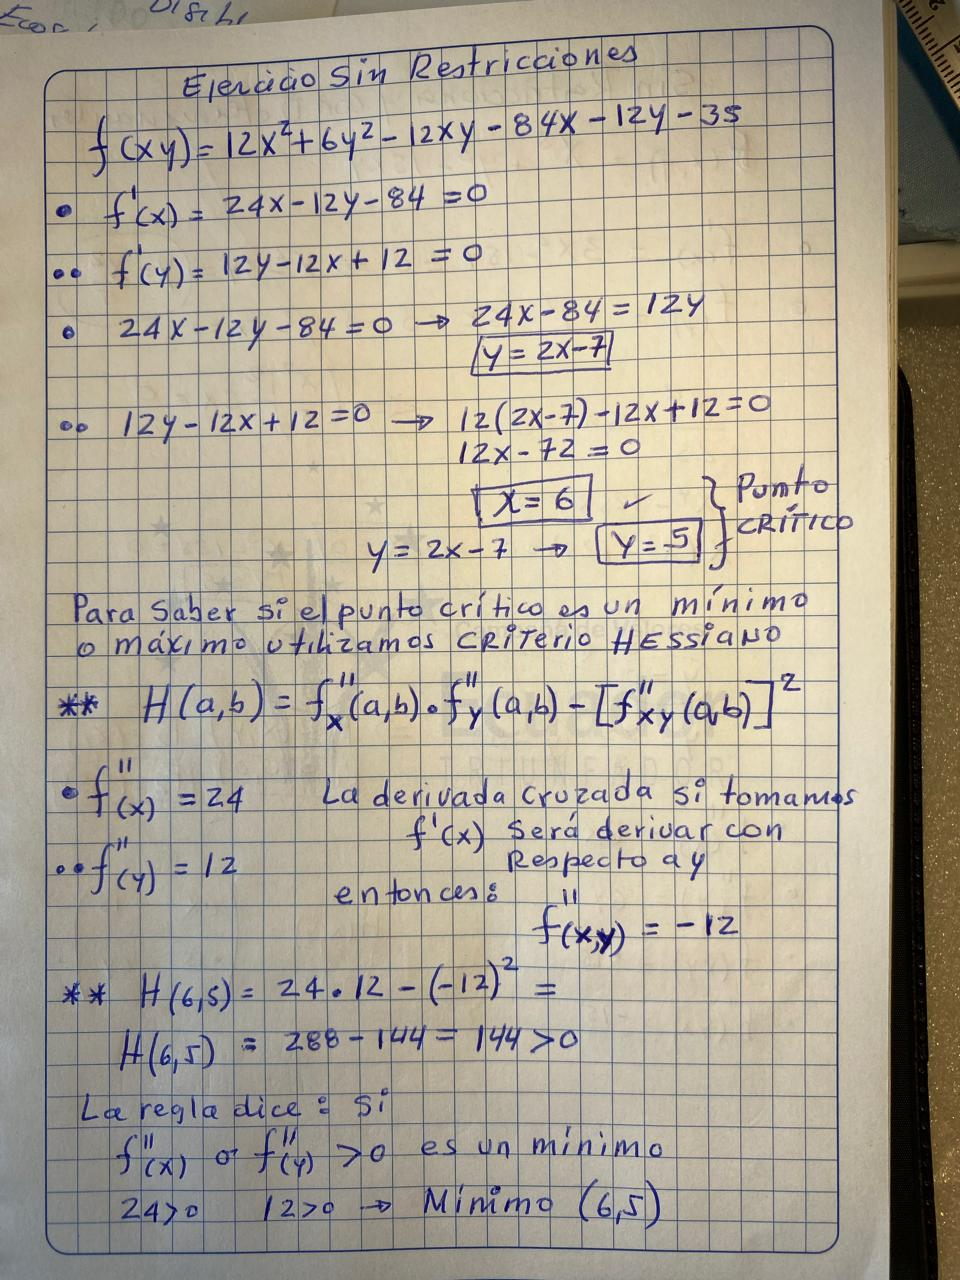 Ejercicio Sin Restricciones
f(xy) = 12x² + 6y² - 12xy - 84x - 12y - 35
• f'(x) = 24x - 12y - 84 = 0
•• f'(y) = 12y - 12x + 12 = 0
• 24x - 12y - 84 = 0 → 24x - 84 = 12y
y = 2x - 7
•• 12y - 12x + 12 = 0 → 12(2x-7) - 12x + 12 = 0
12x - 72 = 0
x = 6 ✓ } Punto
y = 2x - 7 → y = 5 } CRÍTICO
Para Saber si el punto crítico es un mínimo
o máximo utilizamos CRITERIO HESSIANO
** H(a,b) = f''x(a,b) • f''y(a,b) - [f''xy(a,b)]²
• f''(x) = 24 La derivada cruzada si tomamos
f'(x) Será derivar con
•• f''(y) = 12 Respecto a y
entonces:
f''(x,y) = -12
** H(6,5) = 24 • 12 - (-12)² =
H(6,5) = 288 - 144 = 144 > 0
La regla dice: si
f''(x) or f''(y) > 0 es un mínimo
24>0 12>0 → Mínimo (6,5)